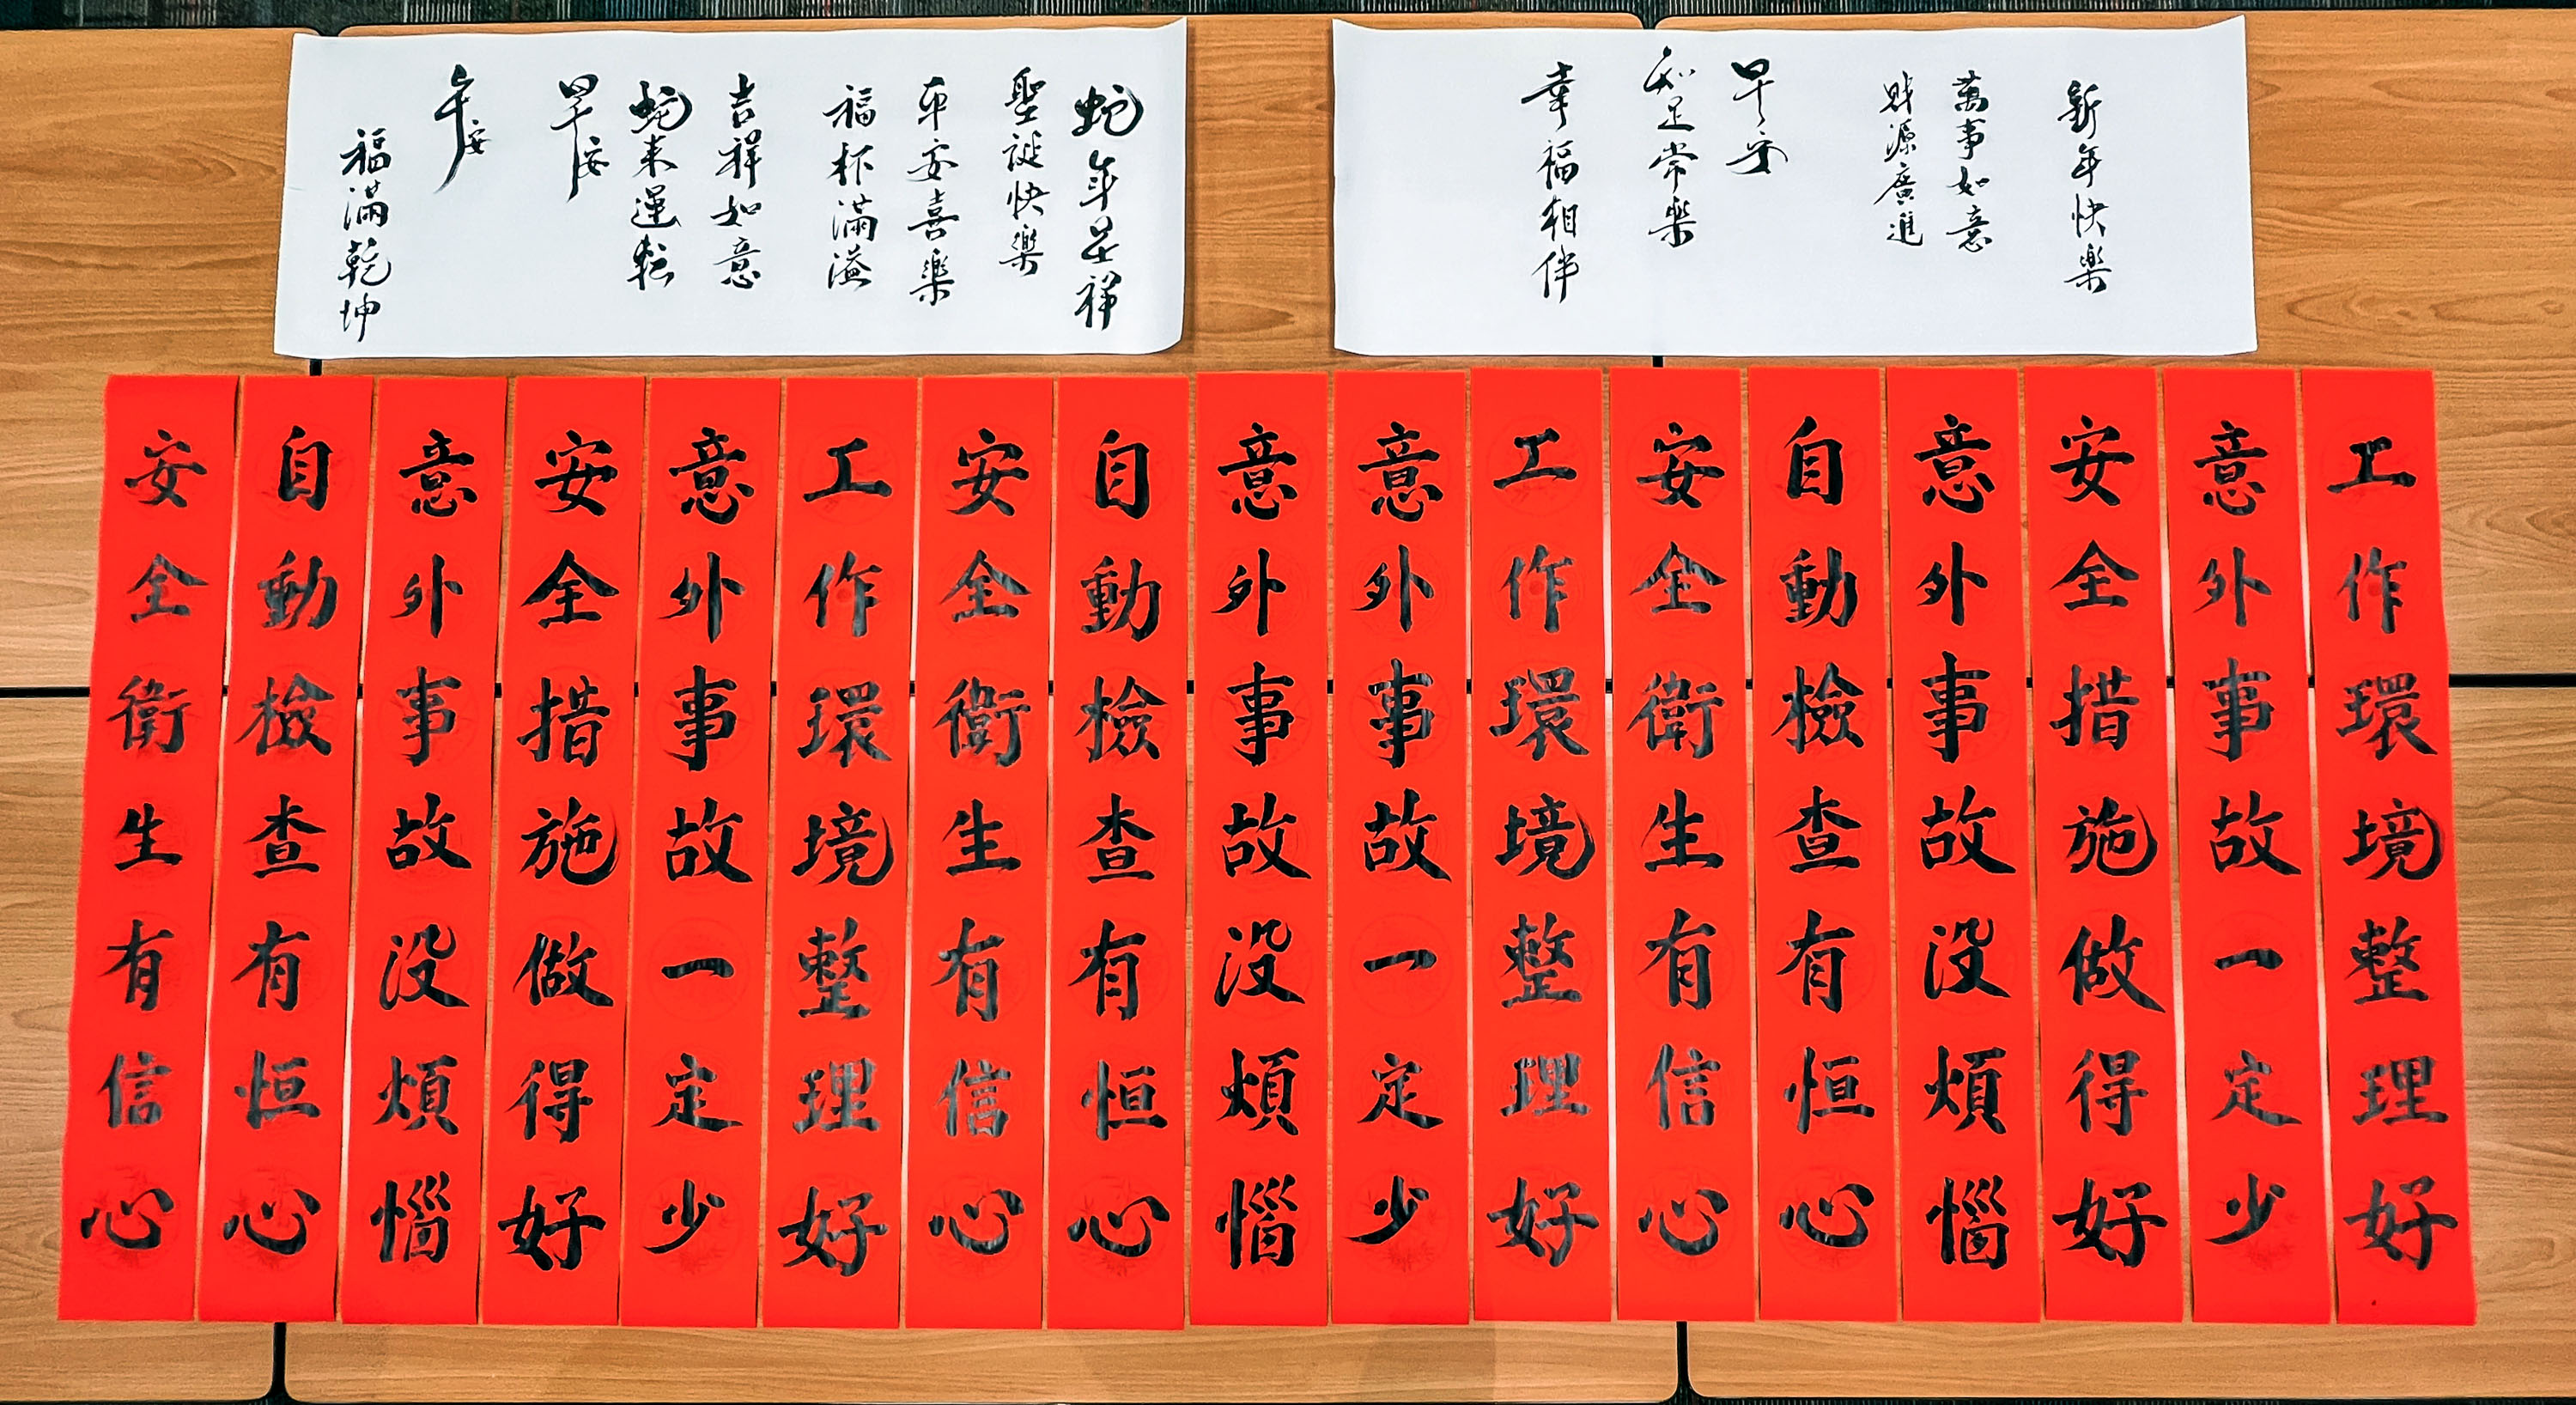 新年快樂
萬事如意
財源廣進
早安
知足常樂
幸福相伴
蛇年呈祥
聖誕快樂
平安喜樂
福杯滿溢
吉祥如意
蛇來運轉
早安
午安
福滿乾坤
工作環境整理好
意外事故一定少
安全措施做得好
意外事故沒煩惱
自動檢查有恒心
安全衛生有信心
工作環境整理好
意外事故一定少
意外事故沒煩惱
自動檢查有恒心
安全衛生有信心
工作環境整理好
意外事故一定少
安全措施做得好
意外事故沒煩惱
自動檢查有恒心
安全衛生有信心